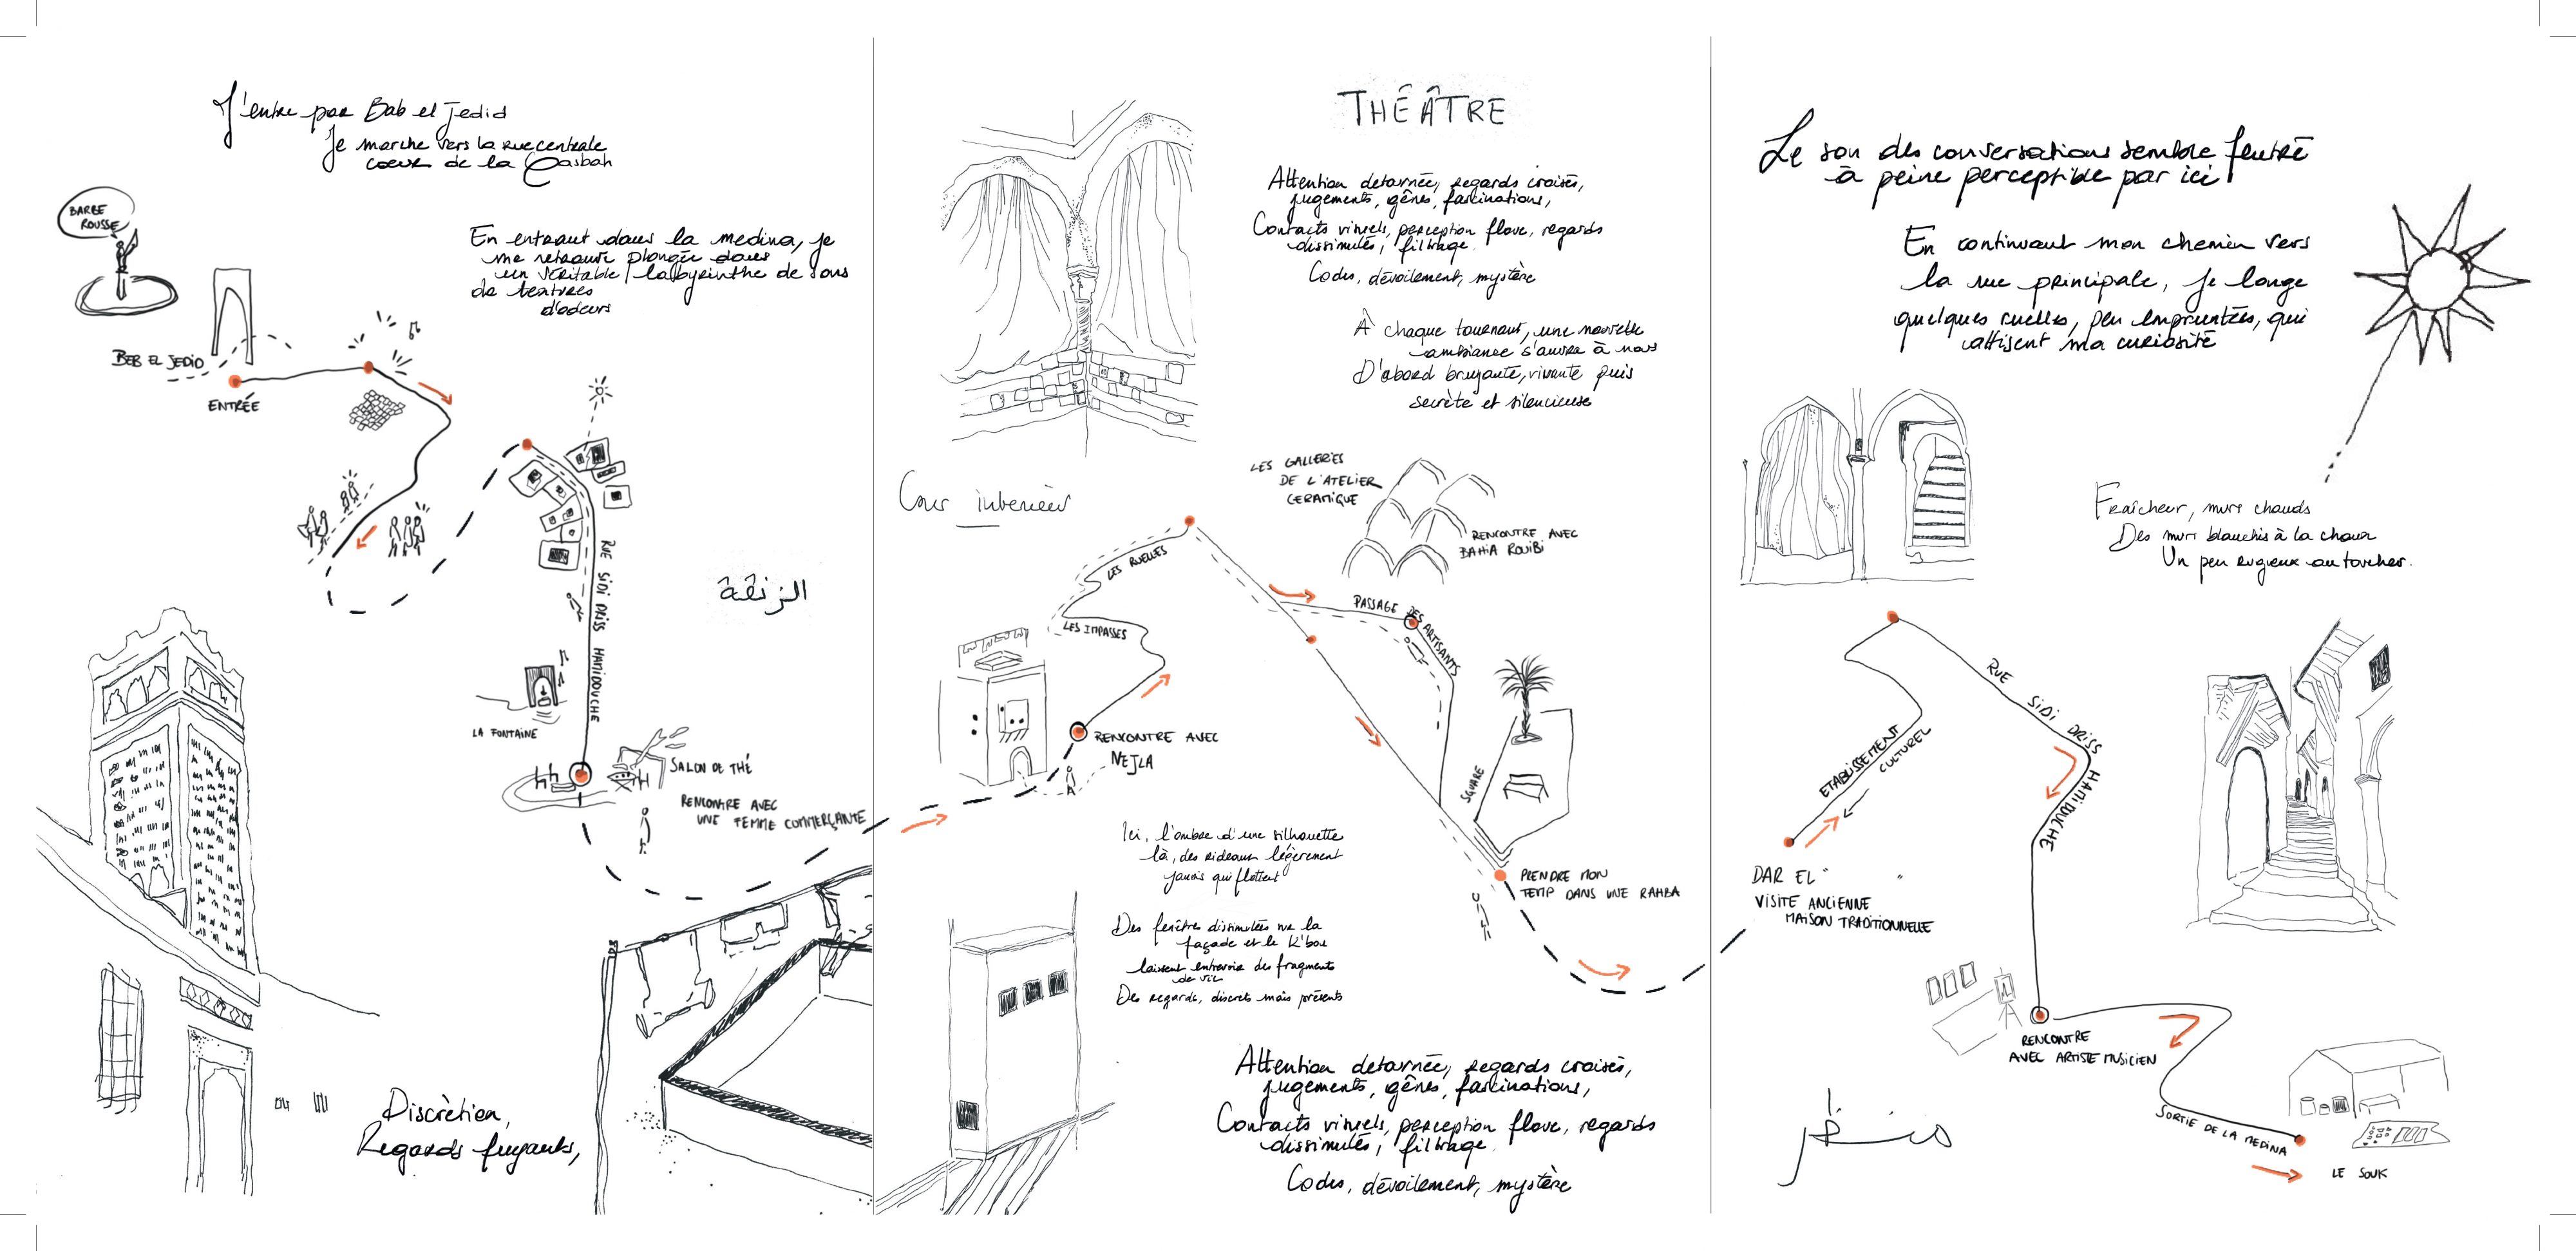 J'entre par Bab el Jedid
Je marche vers la rue centrale
coeur de la Qasbah
BARBE
ROUSSE
En entrant dans la medina, je
me retrouve plongée dans
un véritable labyrinthe de sons
de textures
d'odeurs
BEB EL JEDID
ENTRÉE
RUE SIDI DRISS HAMIDOUCHE
الزنقة
LA FONTAINE
SALON DE THÉ
RENCONTRE AVEC
UNE FEMME COMMERÇANTE
Discrètion,
Regards fuyants,
THÉÂTRE
Attention detournée, regards croisés,
jugements, gênes, fascinations,
Contacts visuels, perception floue, regards
dissimulés, filtrage.
Codes, dévoilement, mystère
À chaque tournant, une nouvelle
ambiance s'ouvre à nous
D'abord bruyante, vivante puis
secrète et silencieuse
Cour interieur
LES GALLERIES
DE L'ATELIER
CERAMIQUE
RENCONTRE AVEC
BAHIA ROUIBI
LES RUELLES
LES IMPASSES
PASSAGE DES ARTISANTS
RENCONTRE AVEC
NEJLA
SQUARE
Ici, l'ombre d'une silhouette
là, des rideaux légèrement
jaunis qui flottent
PRENDRE MON
TEMP DANS UNE RAHBA
Des fenêtres dissimulées sur la
façade et le K'bou
laissent entrevoir des fragments
de vie
Des regards, discrets mais présents
Attention detournée, regards croisés,
jugements, gênes, fascinations,
Contacts visuels, perception floue, regards
dissimulés, filtrage.
Codes, dévoilement, mystère
Le son des conversations semble feutré
à peine perceptible par ici
En continuant mon chemin vers
la rue principale, je longe
quelques ruelles, peu empruntées, qui
attisent ma curiosité
Fraîcheur, murs chauds
Des murs blanchis à la chaux
Un peu rugueux au toucher.
RUE SIDI DRISS HAMIDOUCHE
ETABLISSEMENT
CULTUREL
DAR EL " "
VISITE ANCIENNE
MAISON TRADITIONNELLE
RENCONTRE
AVEC ARTISTE MUSICIEN
منظر
SORTIE DE LA MEDINA
LE SOUK